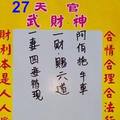 27天官
武財神
合情合理合法行
阿伯拖牛車
一財賜六道
一妻四妾現
財利本是人人